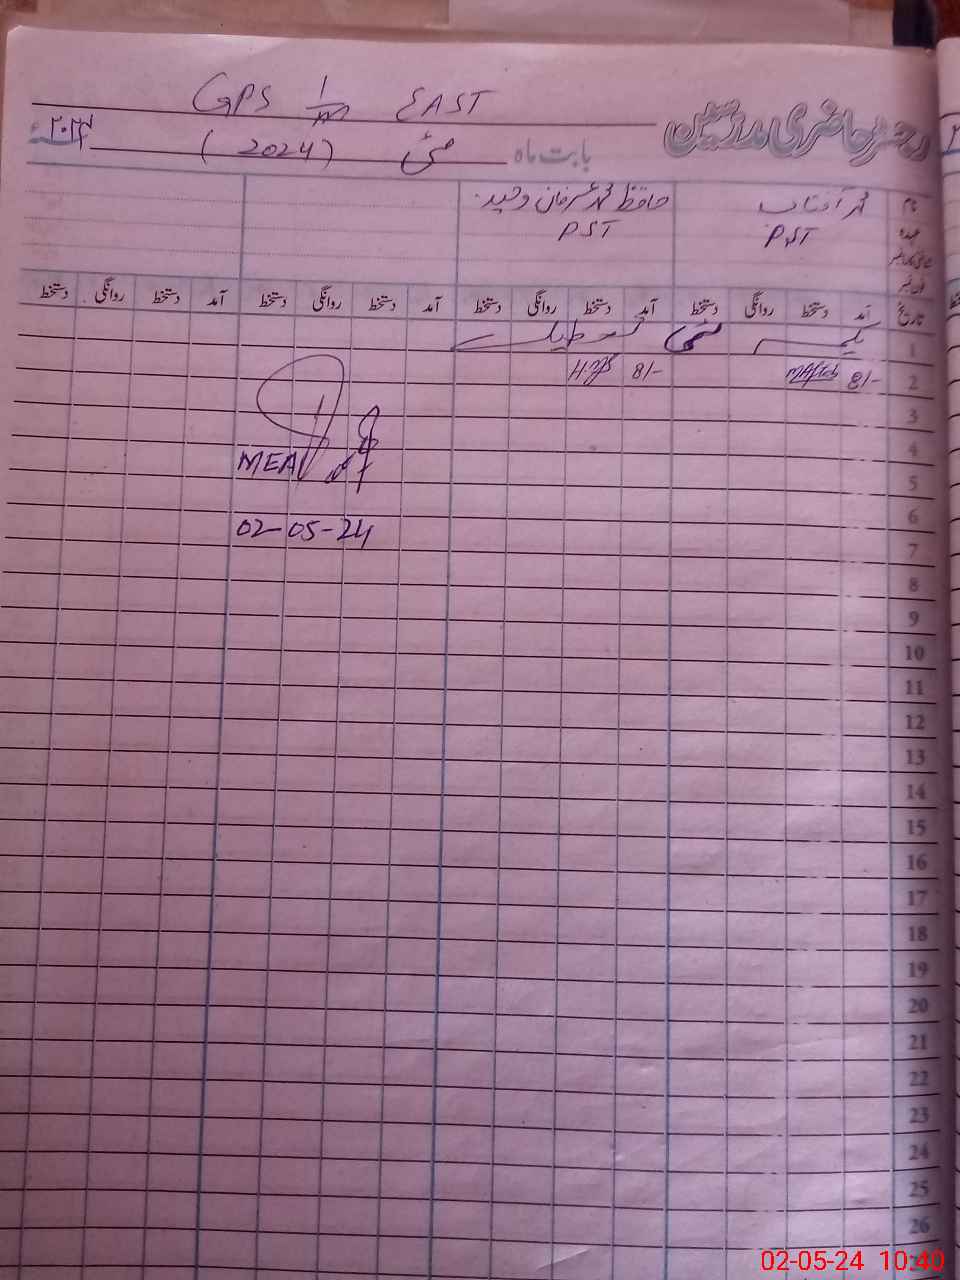 GPS 1/m EAST
دفتر حاضری مدرسین
بابت ماہ مئی (2024) ۲۰۲۴ء
نام محمد آفتاب حافظ محمد عرفان وحید
عہدہ PST PST
تاریخ آمد دستخط روانگی دستخط آمد دستخط روانگی دستخط آمد دستخط روانگی دستخط آمد دستخط روانگی دستخط
1 یکم مئی تعطیل
2 8/- MAftab 8/-
3
4
MEA
5
6
02-05-24
7
8
9
10
11
12
13
14
15
16
17
18
19
20
21
22
23
24
25
26
02-05-24 10:40